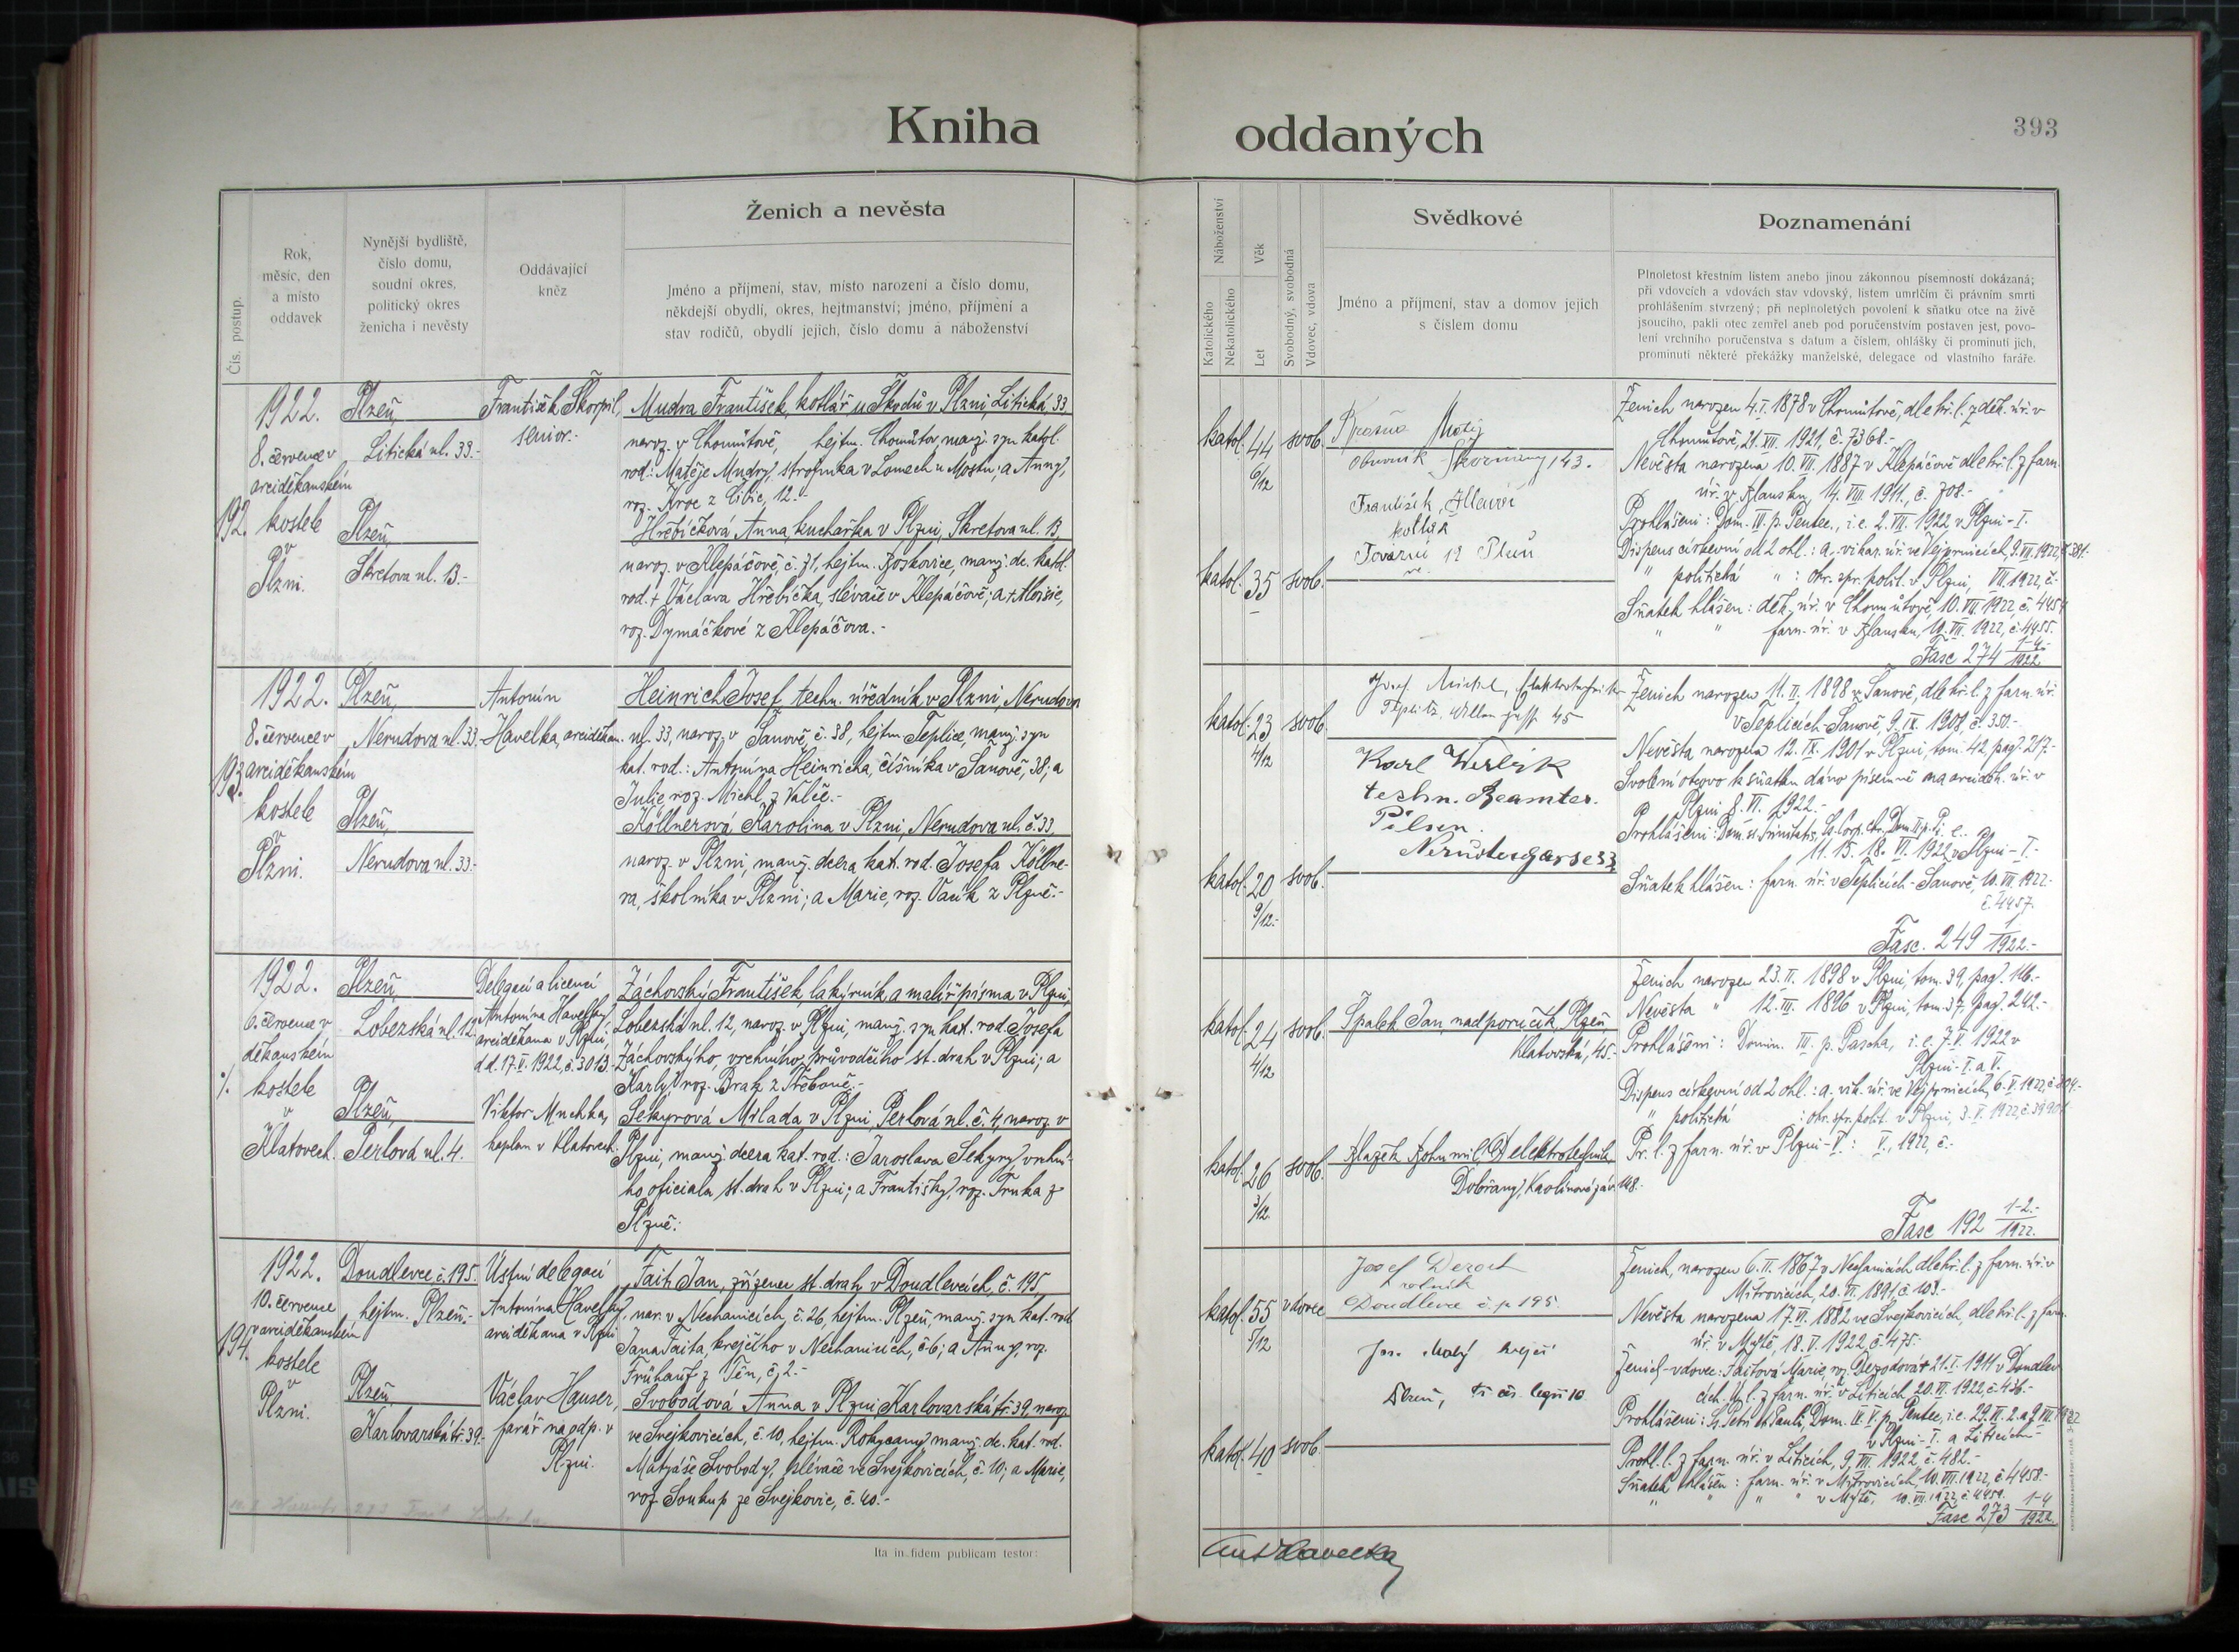 Kniha
oddaných
393
Čís. postup.
Rok,
měsíc, den
a místo
oddavek
Nynější bydliště,
číslo domu,
soudní okres,
politický okres
ženicha i nevěsty
Oddávající
kněz
Ženich a nevěsta
Jméno a příjmení, stav, místo narození a číslo domu,
někdejší obydlí, okres, hejtmanství; jméno, příjmení a
stav rodičů, obydlí jejich, číslo domu a náboženství
Náboženství
Katolického
Nekatolického
Věk
Let
Svobodný, svobodná
Vdovec, vdova
Svědkové
Jméno a příjmení, stav a domov jejich
s číslem domu
Poznamenání
Plnoletost křestním listem anebo jinou zákonnou písemností dokázaná;
při vdovcích a vdovách stav vdovský, listem umrlčím či právním smrti
prohlášením stvrzený; při neplnoletých povolení k sňatku otce na živě
jsoucího, pakli otec zemřel aneb pod poručenstvím postaven jest, povo-
lení vrchního poručenstva s datum a číslem, ohlášky či prominutí jich,
prominutí některé překážky manželské, delegace od vlastního faráře.
192.
1922.
8. července v
arciděkanském
kostele
v
Plzni.
Plzeň,
Litická ul. 33.-
Plzeň,
Skretova ul. 13.-
František Škorpil,
senior.-
Mudra František, kotlář u Škodů v Plzni Litická 33
naroz. v Chomútově, hejtm. Chomútov, manž. syn katol.
rod.: Matěje Mudry, strojníka v Lomech u Mostu; a Anny,
roz. Kroc z Libic, 12.-
Hřebíčková Anna, kuchařka v Plzni, Skretova ul. 13,
naroz. v Klepáčově, č. 71, hejtm. Boskovice, manž. dc. katol.
rod. + Václava Hřebíčka, slévače v Klepáčově; a + Aloisie,
roz. Dymáčkové z Klepáčova.-
katol. 44 6/12 svob.
katol. 35 svob.
Matěj
obuvník Skvrňany 143.
František
kotlář
Tovární 12 Plzeň
Ženich narozen 4. I. 1878 v Chomútově, dle kř. l. z děk. úř. v
Chomútově, 21. XII. 1921, č. 7368.-
Nevěsta narozena 10. VII. 1887 v Klepáčově dle kř. l. z farn.
úř. v Blansku, 14. VIII. 1911. č. 708.-
Prohlášeni: Dom. III. p. Pentec., i. e. 2. VII. 1922 v Plzni-I.
Dispens církevní od 2 ohl.: a. vikar. úř. ve Vejprnicích, 9. VII. 1922, č. 381.-
" politická " : okr. spr. polit. v Plzni, VII. 1922, č.-
Sňatek hlášen: děk. úř. v Chomútově, 10. VII. 1922, č. 4454
" " farn. úř. v Blansku, 10. VII. 1922, č. 4455.
Fasc 274 1-4/1922
193.
1922.
8. července v
arciděkanském
kostele
v
Plzni.
Plzeň,
Nerudova ul. 33.
Plzeň,
Nerudova ul. 33.-
Antonín
Havelka, arciděkan.
Heinrich Josef, techn. úředník v Plzni, Nerudova
ul. 33, naroz. v Šanově, č. 38, hejtm. Teplice, manž. syn
kat. rod.: Antonína Heinricha, číšníka v Šanově, 38; a
Julie, roz. Michl, z Valče.-
Köllnerová Karolina v Plzni, Nerudova ul. č. 33,
naroz. v Plzni, manž. dcera kat. rod. Josefa Köllne-
ra, školníka v Plzni; a Marie, roz. Vacík z Plzně.-
katol. 23 4/12 svob.
katol. 20 9/12.- svob.
Josef Michel, Elektrotechniker
Teplitz, 45
Karl
techn. Beamter.
Pilsen.
33
Ženich narozen 11. II. 1898 v Šanově, dle kř. l. z farn. úř.
v Teplicích-Šanově, 9. IX. 1908, č. 350.-
Nevěsta narozena 12. IX. 1901 v Plzni, tom. 42, pag. 217.-
Svolení otcovo k sňatku dáno písemně na arciděk. úř. v
Plzni 8. VI. 1922.-
Prohlášeni: Dom. ss. Trinitatis, Ss. Corp. Chr., Dom. II. p. P. i. e.
11. 15. 18. VI. 1922 v Plzni-I.-
Sňatek hlášen: farn. úř. v Teplicích-Šanově, 10. VII. 1922.-
č. 4457.
Fasc. 249 1/1922.-
1922.
6. července v
děkanském
kostele
v
Klatovech.
Plzeň,
Lobezská ul. 12.
Plzeň,
Perlová ul. 4.
Delegací a licencí
Antonína Havelky
arciděkana v Plzni,
dd. 17. V. 1922, č. 3013.-
Viktor Muchka,
kaplan v Klatovech.
Záchovský František lakýrník a malíř písma v Plzni,
Lobezská ul. 12, naroz. v Plzni, manž. syn kat. rod. Josefa
Záchovskýho, vrchního průvodčího st. drah v Plzni; a
Karly roz. Brak z Třeboně.-
Sekyrová Milada, v Plzni, Perlová ul. č. 4, naroz. v
Plzni, manž. dcera kat. rod.: Jaroslava Sekyry, vrchní-
ho oficiala st. drah v Plzni; a Františky, roz. Trnka z
Plzně.-
katol. 24 4/12 svob.
katol. 26 3/12. svob.
Špalek Jan, nadporučík Plzeň,
Klatovská, 45.-
Blažek Bohumil, elektrotechnik,
Dobřany, Kaolinové záv. 148.-
Ženich narozen 23. II. 1898 v Plzni, tom. 39, pag. 116.-
Nevěsta " 12. III. 1896 v Plzni, tom. 37, pag. 242.-
Prohlášeni: Domin. III. p. Pascha, i. e. 7. V. 1922 v
Plzni-I. a V.
Dispens církevní od 2 ohl.: a. vik. úř. ve Vejprnicích, 6. V. 1922, č.
" politická : okr. spr. polit. v Plzni, 3. V. 1922, č.
Pr. l. z farn. úř. v Plzni-V: V., 1922, č.-
Fasc 192 1-2.-/1922.
194.
1922.
10. července
v arciděkanském
kostele
v
Plzni.
Doudlevce č. 195.
hejtm. Plzeň.-
Plzeň,
Karlovarská tř. 39.-
Ústní delegací
Antonína Havelky,
arciděkana v Plzni
Václav Hauser,
farář na odp. v
Plzni.
Fait Jan, zřízenec st. drah v Doudlevcích, č. 195,
nar. v Nechanicích, č. 26, hejtm. Plzeň, manž. syn kat. rod.
Jana Faita, krejčího v Nechanicích, č. 6; a Anny, roz.
Frühauf z Týn, č. 2.-
Svobodová Anna v Plzni, Karlovarská tř. 39, naroz.
ve Svejkovicích, č. 10, hejtm. Rokycany, manž. dc. kat. rod.
Matyáše Svobody, slévače ve Svejkovicích, č. 10; a Marie,
roz. Soukup ze Svejkovic, č. 40.-
katol. 55 5/12 vdovec
katol. 40 svob.
Josef Dezort
rolník
Doudlevce č. p. 195.
Jos. Malý krejčí
Plzeň, tř. čs. legií 10
Ženich, narozen 6. II. 1867 v Nechanicích dle kř. l. z farn. úř. v
Mitrovicích, 20. VI. 1891, č. 103.-
Nevěsta narozena 17. VI. 1882 ve Svejkovicích, dle kř. l. z farn.
úř. v Mýtě, 18. V. 1922, č. 475.-
Ženich-vdovec: Faitová Marie, roz. + 21. I. 1911 v Doudlev
cích. Úm. l. z farn. úř. v Liticích 20. VI. 1922, č. 436.-
Prohlášeni: Ss. Petri et Pauli, Dom. IV. V. p. Pentec., i. e. 29. VI. 2. a 9. VII. 1922
v Plzni-I. a Liticích
Prohl. l. z farn. úř. v Liticích, 9. VII. 1922 č. 482.-
Sňatek hlášen: farn. úř. v Mitrovicích, 10. VII. 1922, č. 4458.-
" " " " v Mýtě, 10. VII. 1922, č. 4459.
Fasc 273 1-4/1922.
Ita in fidem publicam testor:
Ant Havelka